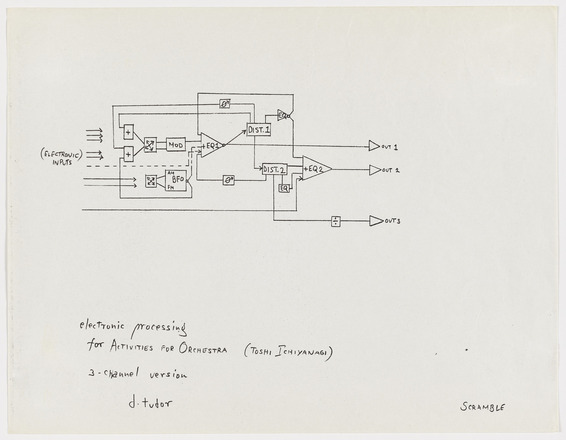 (ELECTRONIC) INPUTS
+
+
MOD
+EQ1
DIST. 1
EQ
OUT 1
AM
BFO
FM
DIST. 2
+EQ2
EQ
OUT 2
÷
OUT 3
electronic processing
for ACTIVITIES FOR ORCHESTRA (TOSHI ICHIYANAGI)
3-channel version
d. tudor
SCRAMBLE